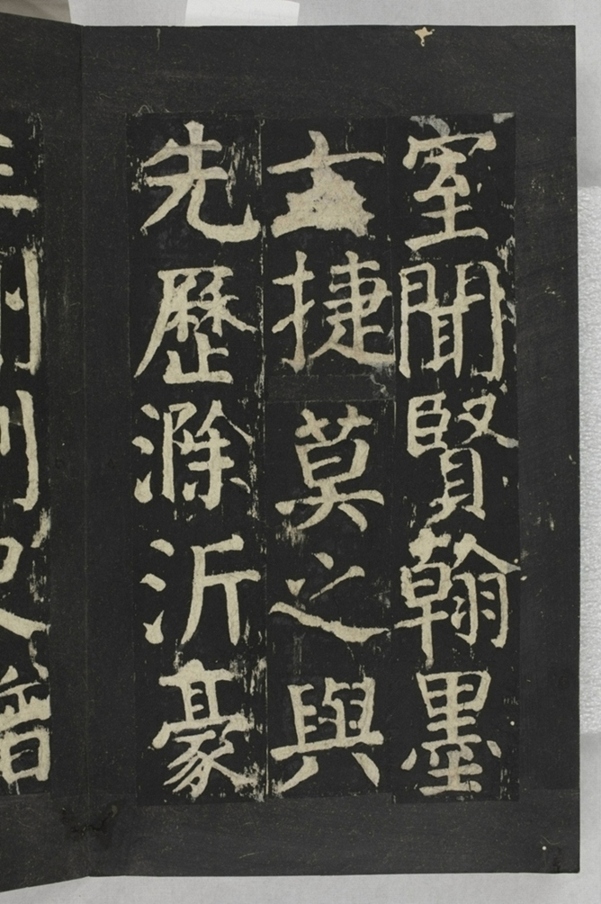 室聞賢翰墨
捷莫之與
先歷滁沂豪